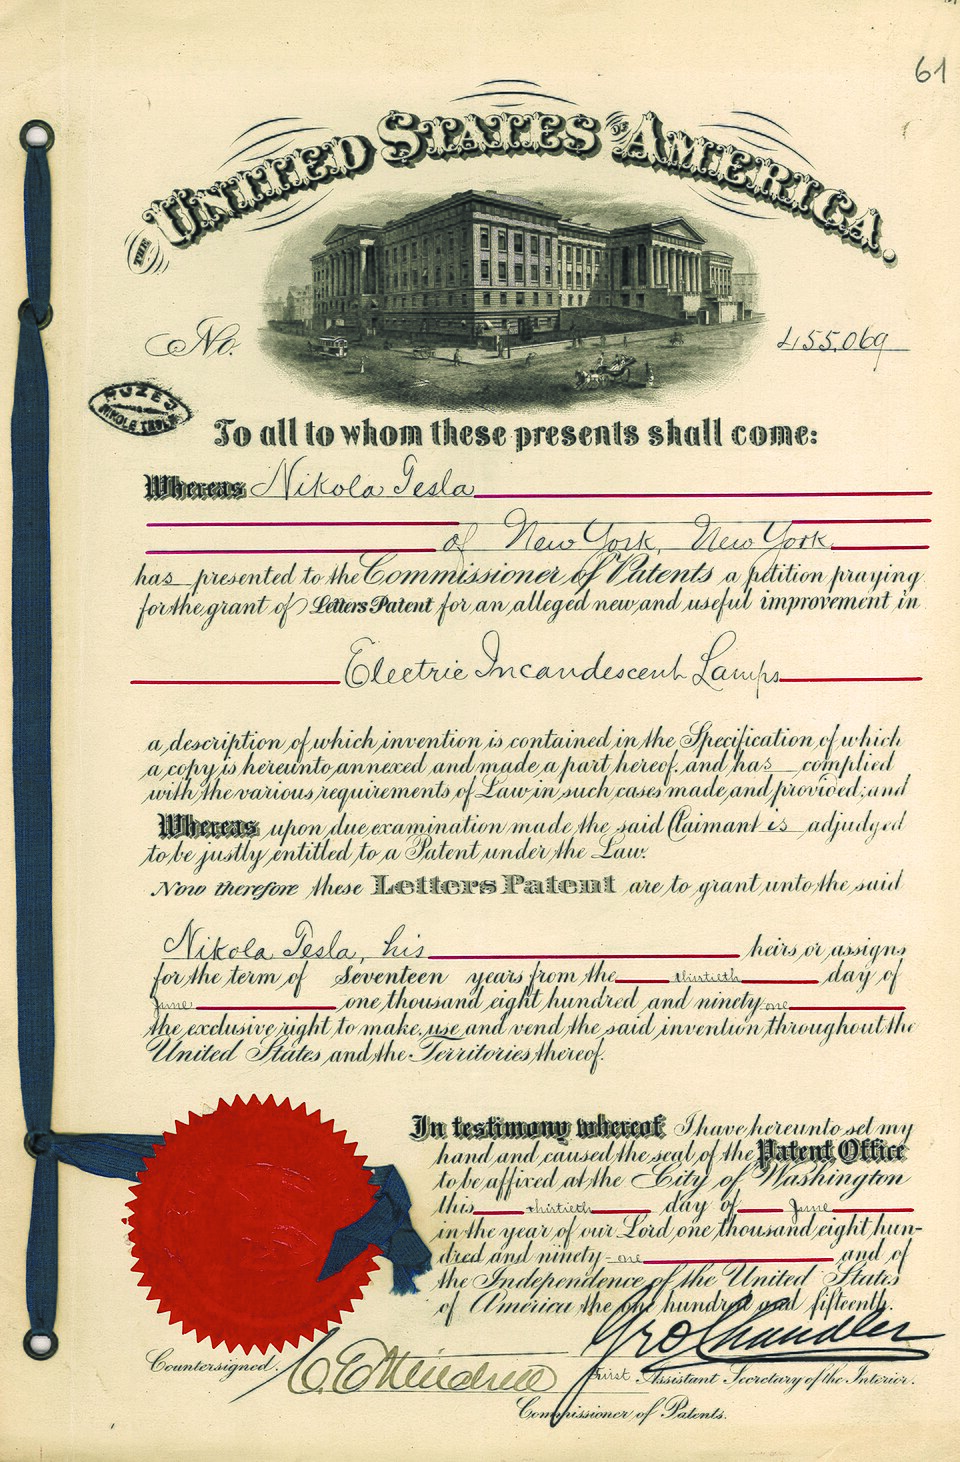 61
THE UNITED STATES OF AMERICA.
No. 455,069
MUZEJ
NIKOLE TESLE
To all to whom these presents shall come:
Whereas Nikola Tesla
of New York, New York
has presented to the Commissioner of Patents a petition praying
for the grant of Letters Patent for an alleged new and useful improvement in
Electric Incandescent Lamps
a description of which invention is contained in the Specification of which
a copy is hereunto annexed and made a part hereof, and has complied
with the various requirements of Law in such cases made and provided; and
Whereas upon due examination made the said Claimant is adjudged
to be justly entitled to a Patent under the Law.
Now therefore these Letters Patent are to grant unto the said
Nikola Tesla, his heirs or assigns
for the term of Seventeen years from the thirtieth day of
June one thousand eight hundred and ninety-one
the exclusive right to make, use and vend the said invention throughout the
United States and the Territories thereof.
In testimony whereof I have hereunto set my
hand and caused the seal of the Patent Office
to be affixed at the City of Washington
this thirtieth day of June
in the year of our Lord one thousand eight hun-
dred and ninety-one and of
the Independence of the United States
of America the one hundred and fifteenth.
Geo Chandler
Countersigned. C. E. Mitchell
First Assistant Secretary of the Interior.
Commissioner of Patents.